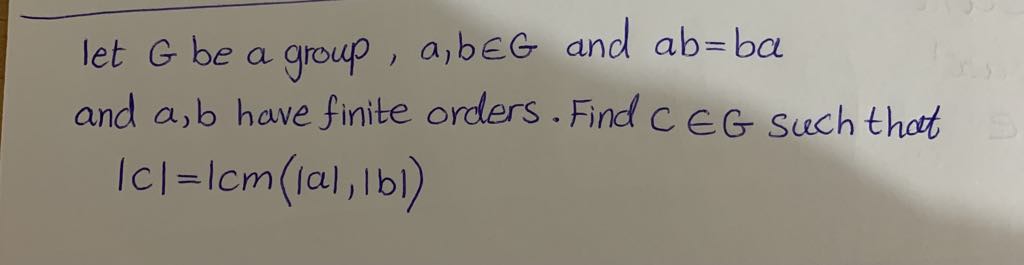 let G be a group, a,b∈G and ab=ba
and a,b have finite orders. Find C∈G such that
|c|=lcm(|a|,|b|)